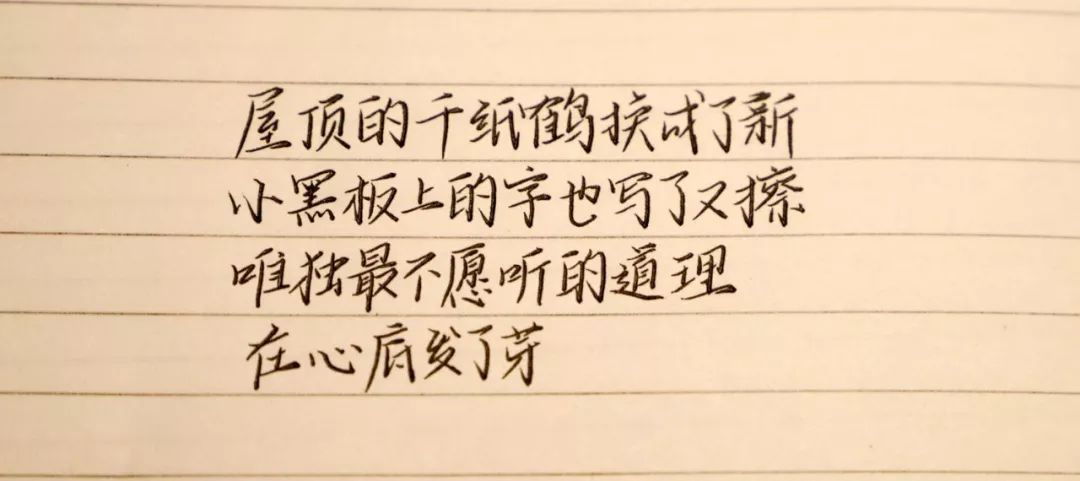 屋顶的千纸鹤换成了新
小黑板上的字也写了又擦
唯独最不愿听的道理
在心底发了芽